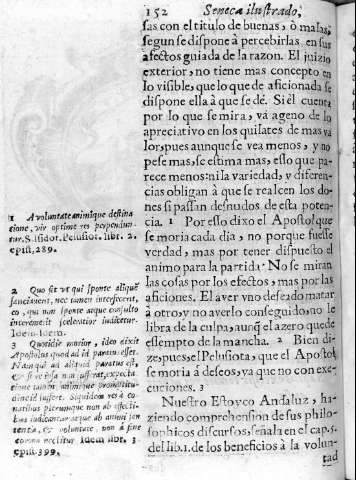 152 Seneca ilustrado,
sas con el titulo de buenas, ò malas,
segun se dispone à percebirlas en sus
afectos guiada de la razon. El juizio
exterior, no tiene mas concepto en
lo visible, que lo que de aficionada se
dispone ella à que se dé. Si èl cuenta
por lo que se mira, và ageno de lo
apreciativo en los quilates de mas va
lor, pues aunque se vea menos, y no
pese mas, se estima mas, esso que pa
rece menos: ni la variedad, y diferen
cias obligan à que se realcen los do-
nes si passan desnudos de esta poten
cia. 1 Por esso dixo el Apostol que
se moria cada dia, no porque fuesse
verdad, mas por tener dispuesto el
animo para la partida. No se miran
las cosas por los efectos, mas por las
aficiones. El aver vno deseado matar
à otro, y no averlo conseguido, no le
libra de la culpa, aunq̃ el azero quede
essempto de la mancha. 2 Bien di-
ze, pues, el Pelusiota, que el Apostol
se moria à deseos, ya que no con exe-
cuciones. 3
Nuestro Estoyco Andaluz, ha-
ziendo comprehension de sus philo-
sophicos discursos, señala en el cap. 5.
del lib. 1. de los beneficios à la volun-
tad
1 A voluntate animique destina
tione, viv optime res perpendun-
tur. S. Isidor. Pelusiot. libr. 2.
epist. 289.
2 Quo fit vt qui sponte aliquẽ
 nec tamen interfecerit,
 qui non sponte atque consulto
 sceleratior iudicetur.
Idem. Idem.
3 Quotidie morior, ideo dixit
Apostolus quod ad id paratus esset.
Nam qui ad aliquid paratus est,
 tamen animique promptitu-
 Siquidem res à co-
natibus plerunque non ab effecti-
bus iudicantur atque ab animi sen
tentia, & voluntate, non à fine
 Idem libr. 3.
epist. 399.